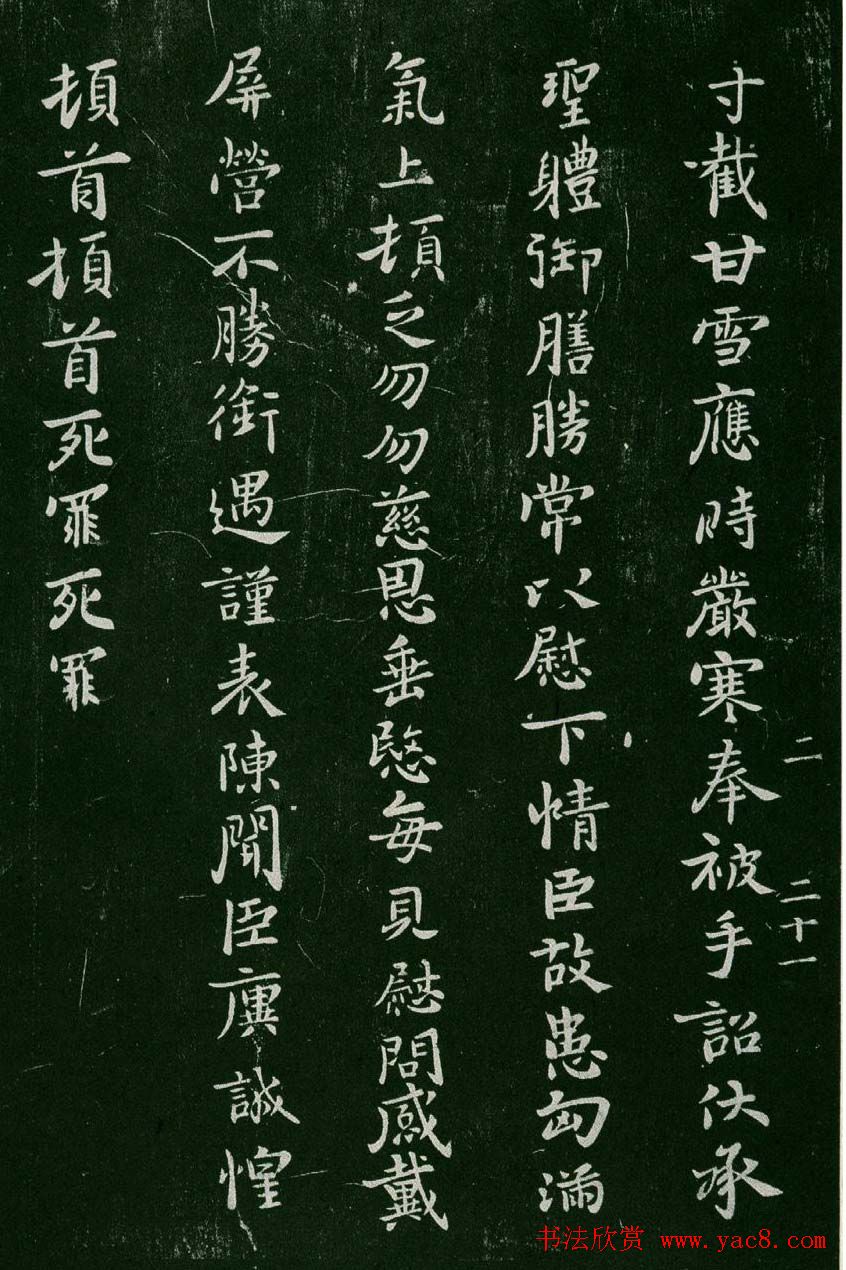 寸截甘雪應時嚴寒奉被手詔伏承
聖體御膳勝常以慰下情臣故患匈滿
氣上頓乏勿勿慈恩垂愍每見慰問感戴
屏營不勝銜遇謹表陳聞臣廙誠惶
頓首頓首死罪死罪
二 二十一
书法欣赏 www.yac8.com